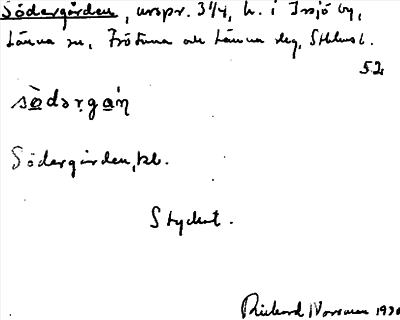 Södergården, urspr. 3/4, h. i Issjö by,
Länna sn, Frötuna och Länna skg, Sthlms l.
52
södərgan
Södergården, kl.
Styckat.
Rickard Norrman 1930